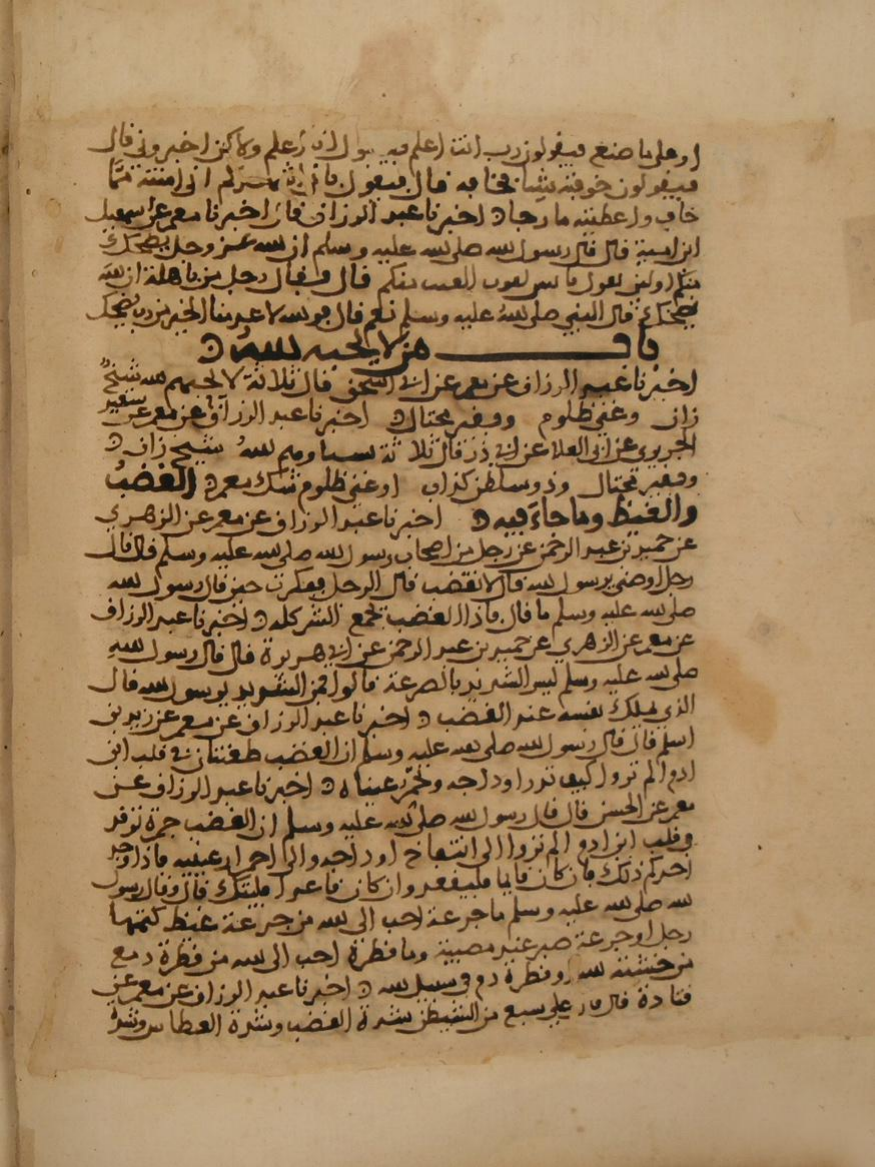 او علي ما صنع فيقولون رب انت اعلم فيقول انا اعلم ولكن اخبروني قال
فيقولون خوفته شيا فخافه قال فيقول فاني اشهدكم اني امنته مما
خاف واعطيته ما رجا ۵ اخبرنا عبد الرزاق قال اخبرنا معمر عن اسمعيل
ابن امية قال قال رسول الله صلى الله عليه وسلم ان الله عز وجل يضحك
منكم قال فقال رجل من باهلة ان الله
يضحك قال النبي صلى الله عليه وسلم نعم قال فوالله لا عدمنا الخير من رب يضحك
باب من لا يحبه الله ۵
اخبرنا عبد الرزاق عن معمر عن ابي اسحق قال ثلاثة لا يحبهم الله شيخ
زان وغني ظلوم وفقير مختال ۵ اخبرنا عبد الرزاق عن معمر عن سعيد
الجريري عن ابي العلا عن ابي ذر قال ثلاثة يسناوهم الله شيخ زان ۵
وفقير مختال وذو سلطن كذاب او غني ظلوم شك معمر ۵ الغضب
والغيظ وما جاء فيه ۵ اخبرنا عبد الرزاق عن معمر عن الزهري
عن حميد بن عبد الرحمن عن رجل من اصحاب رسول الله صلى الله عليه وسلم قال قال
رجل اوصني يرسول الله قال لا تغضب قال الرجل ففكرت حين قال رسول الله
صلى الله عليه وسلم ما قال فاذا الغضب يجمع الشر كله ۵ اخبرنا عبد الرزاق
عن معمر عن الزهري عن حميد بن عبد الرحمن عن ابي هريرة قال قال رسول الله
صلى الله عليه وسلم ليس الشديد بالصرعة قالوا فمن الشديد يرسول الله قال
الذي يملك نفسه عند الغضب ۵ اخبرنا عبد الرزاق عن معمر عن زيد بن
اسلم قال قال رسول الله صلى الله عليه وسلم ان الغضب طغيان في قلب ابن
ادم الم تروا كيف تدر اوداجه وتحمر عيناه ۵ اخبرنا عبد الرزاق عن
معمر عن الحسن قال قال رسول الله صلى الله عليه وسلم ان الغضب جمرة توقد
في قلب ابن ادم الم تروا الى انتفاخ اوداجه والى احمرار عينيه فاذا وجد
احدكم ذلك فان كان قايما فليقعد وان كان قاعدا فليتك قال وقال رسول
الله صلى الله عليه وسلم ما جرعة احب الى الله من جرعة غيظ كتمها
رجل او جرعة صبر عند مصيبة وما قطرة احب الى الله من قطرة دمع
من خشية الله او قطرة دم في سبيل الله ۵ اخبرنا عبد الرزاق عن معمر عن
قتادة قال سبع من الشيطن شدة الغضب وشدة العطاس وشدة